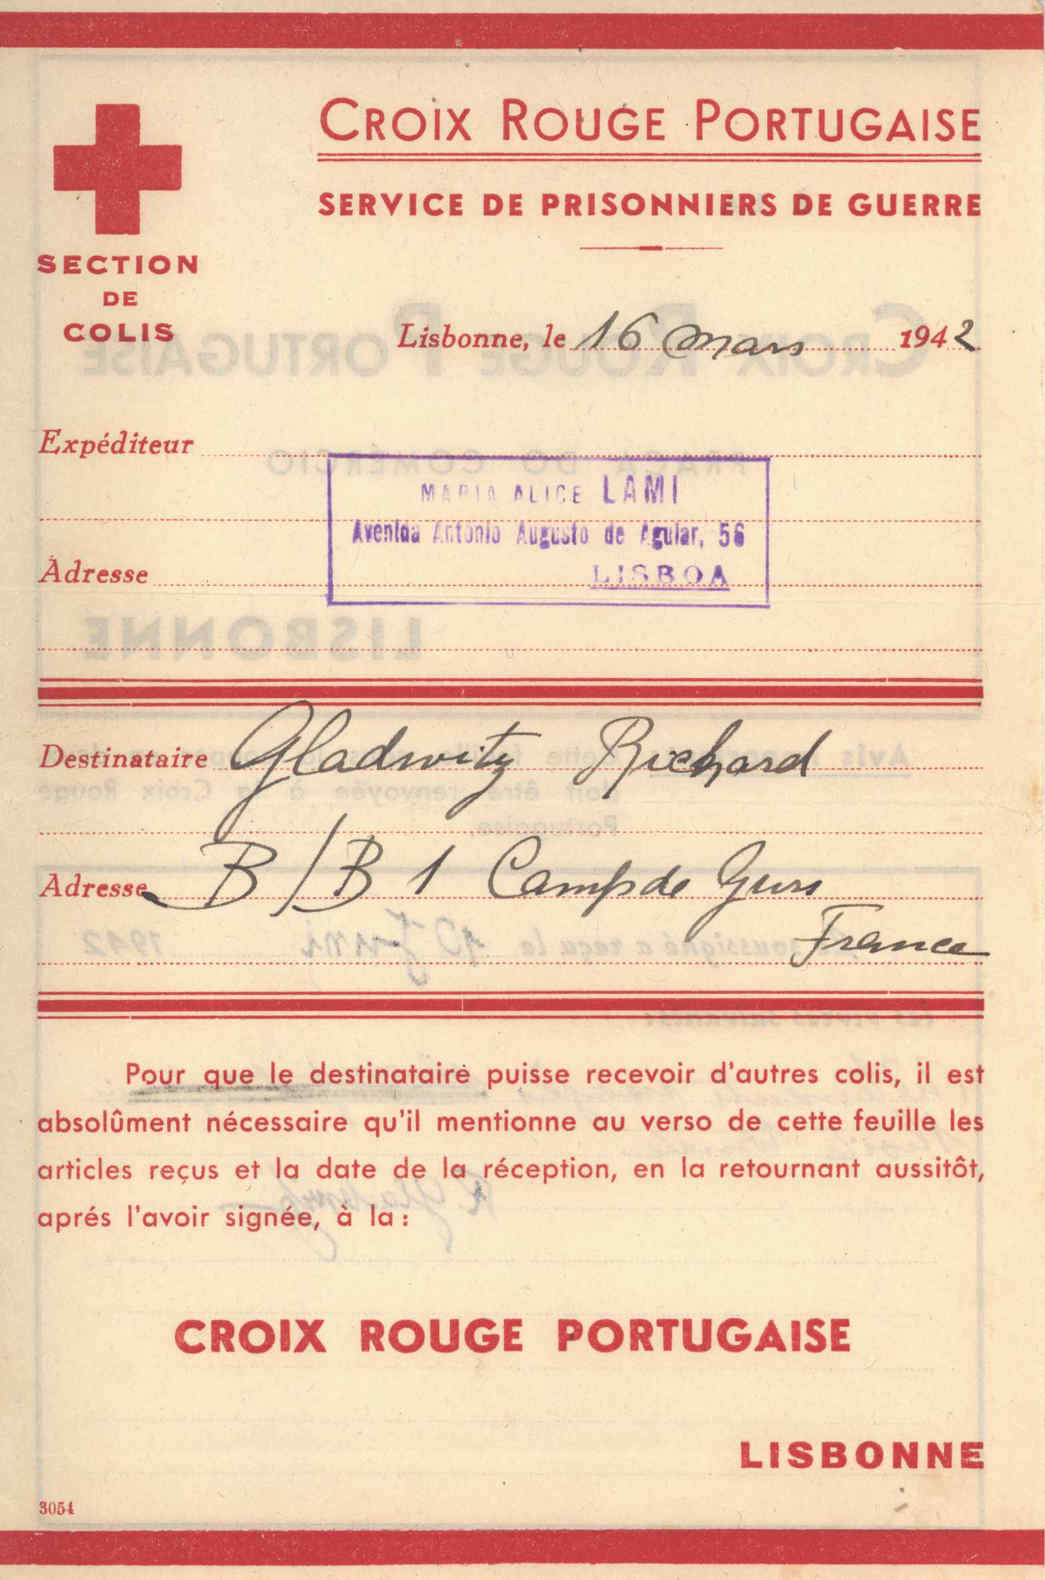 CROIX ROUGE PORTUGAISE
SERVICE DE PRISONNIERS DE GUERRE
SECTION
DE
COLIS
Lisbonne, le 16 Mars 1942
Expéditeur
MARIA ALICE LAMI
Avenida Antonio Augusto de Aguiar, 56
Adresse
LISBOA
Destinataire Gladwitz Richard
Adresse B/B 1 Camp de Gurs
France
Pour que le destinataire puisse recevoir d'autres colis, il est
absolûment nécessaire qu'il mentionne au verso de cette feuille les
articles reçus et la date de la réception, en la retournant aussitôt,
aprés l'avoir signée, à la:
CROIX ROUGE PORTUGAISE
LISBONNE
3054